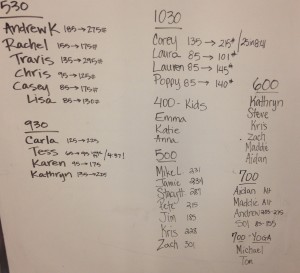 530
Andrew K 185→275#
Rachel 155→175#
Travis 135→295#
Chris 95→125#
Casey 85→175#
Lisa 85→130#
930
Carla 125→225
Tess 65→95
Karen 95→175
Kathryn 135→225
1030
Corey 135→215#
Laura 85→101#
Lauren 85→145#
Poppy 85→140#
400-Kids
Emma
Katie
Anna
500
Mike L 231
Jamie 234
Stewatt
Pete 215
Jim 185
Kris 228
Zach 301
600
Kathryn
Steve
Kris
Zach
Maddie
Aidan
700
Aidan
Maddie
Andrew
700-YOGA
Michael
Tom